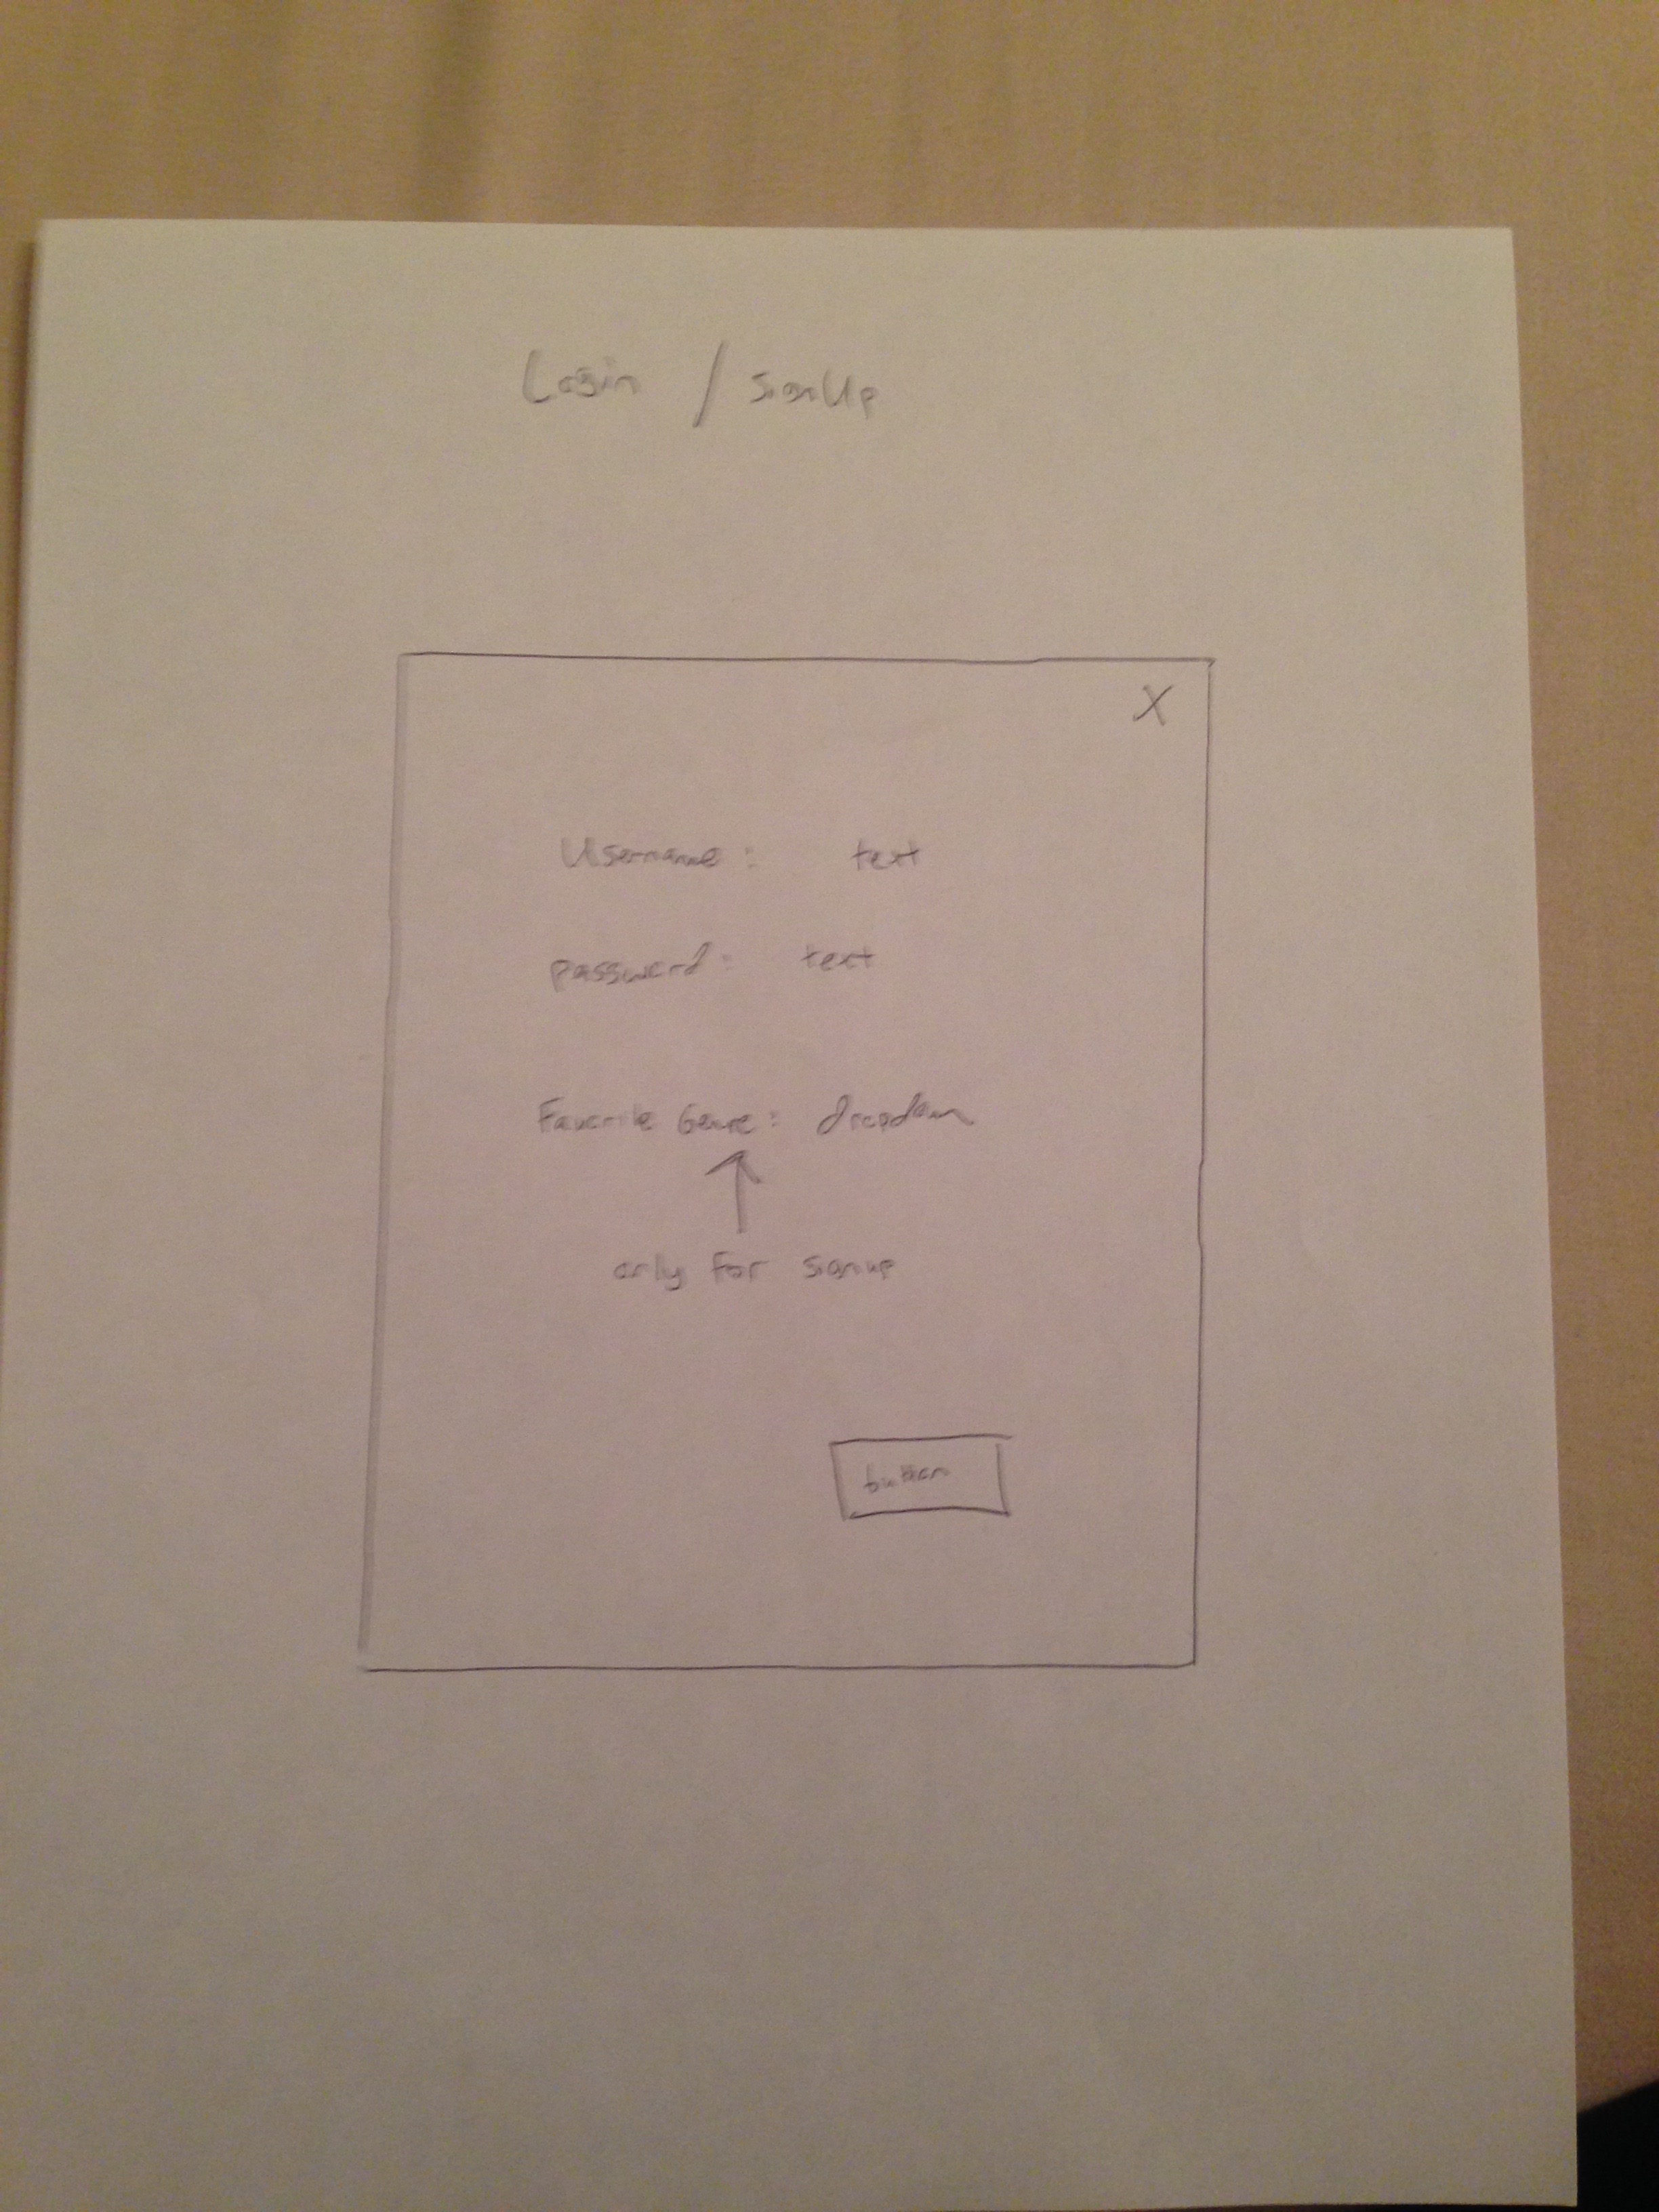 Login / SignUp
X
Username: text
password: text
Favorite Genre: dropdown
only for signup
button